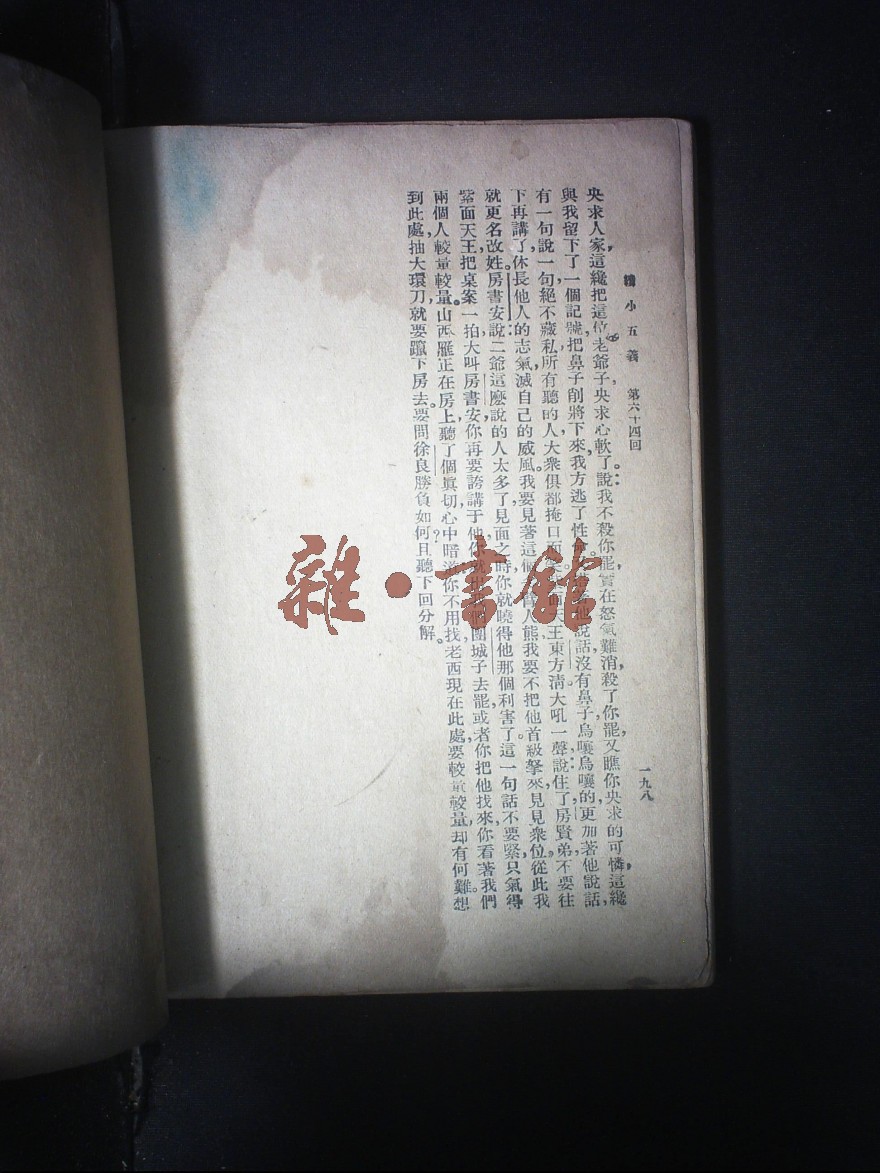 續小五義 第六十四回 一九八
央求人家，這纔把這位老爺子央求心軟了。說：我不殺你罷，實在怒氣難消，殺了你罷，又瞧你央求的可憐，這纔
與我留下了一個記號，把鼻子削將下來，我方逃了性 他說話，沒有鼻子，烏嚷烏嚷的，更加著他說話，
有一句說一句，絕不藏私，所有聽的人，大衆俱都掩口而 面天王東方清大吼一聲，說：住了，房賢弟，不要往
下再講了，休長他人的志氣，滅自己的威風。我要見著這 人熊，我要不把他首級拏來見見衆位，從此我
就更名改姓。房書安說：二爺，這麽說的人太多了，見面之時，你就曉得他那個利害了。這一句話不要緊，只氣得
紫面天王把桌案一拍，大叫房書安，你再要誇講于他，你就 團城子去罷，或者你把他找來，你看著我們
兩個人較量較量。山西雁正在房上聽了個眞切，心中暗 你不用找，老西現在此處，要較量較量，却有何難。想
到此處，抽大環刀，就要躥下房去。要問徐良勝負如何？且聽下回分解。
雜·書館